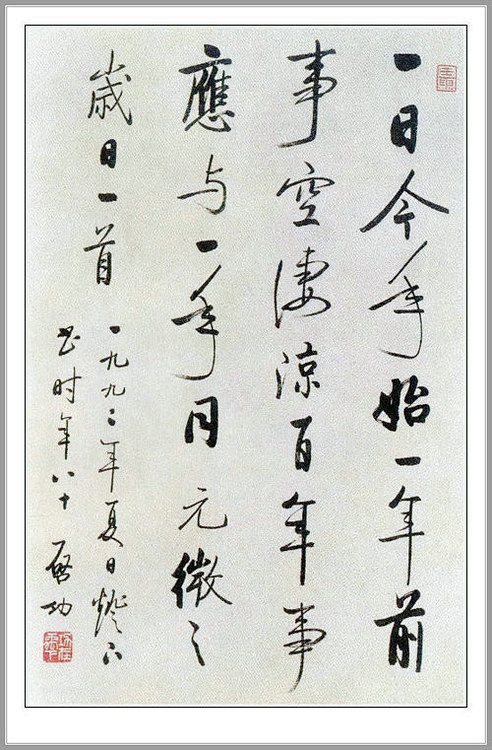 一日今年始一年前
事空淒涼百年事
應与一年同元微之
歲日一首
一九九二年夏日燈下
书时年八十启功